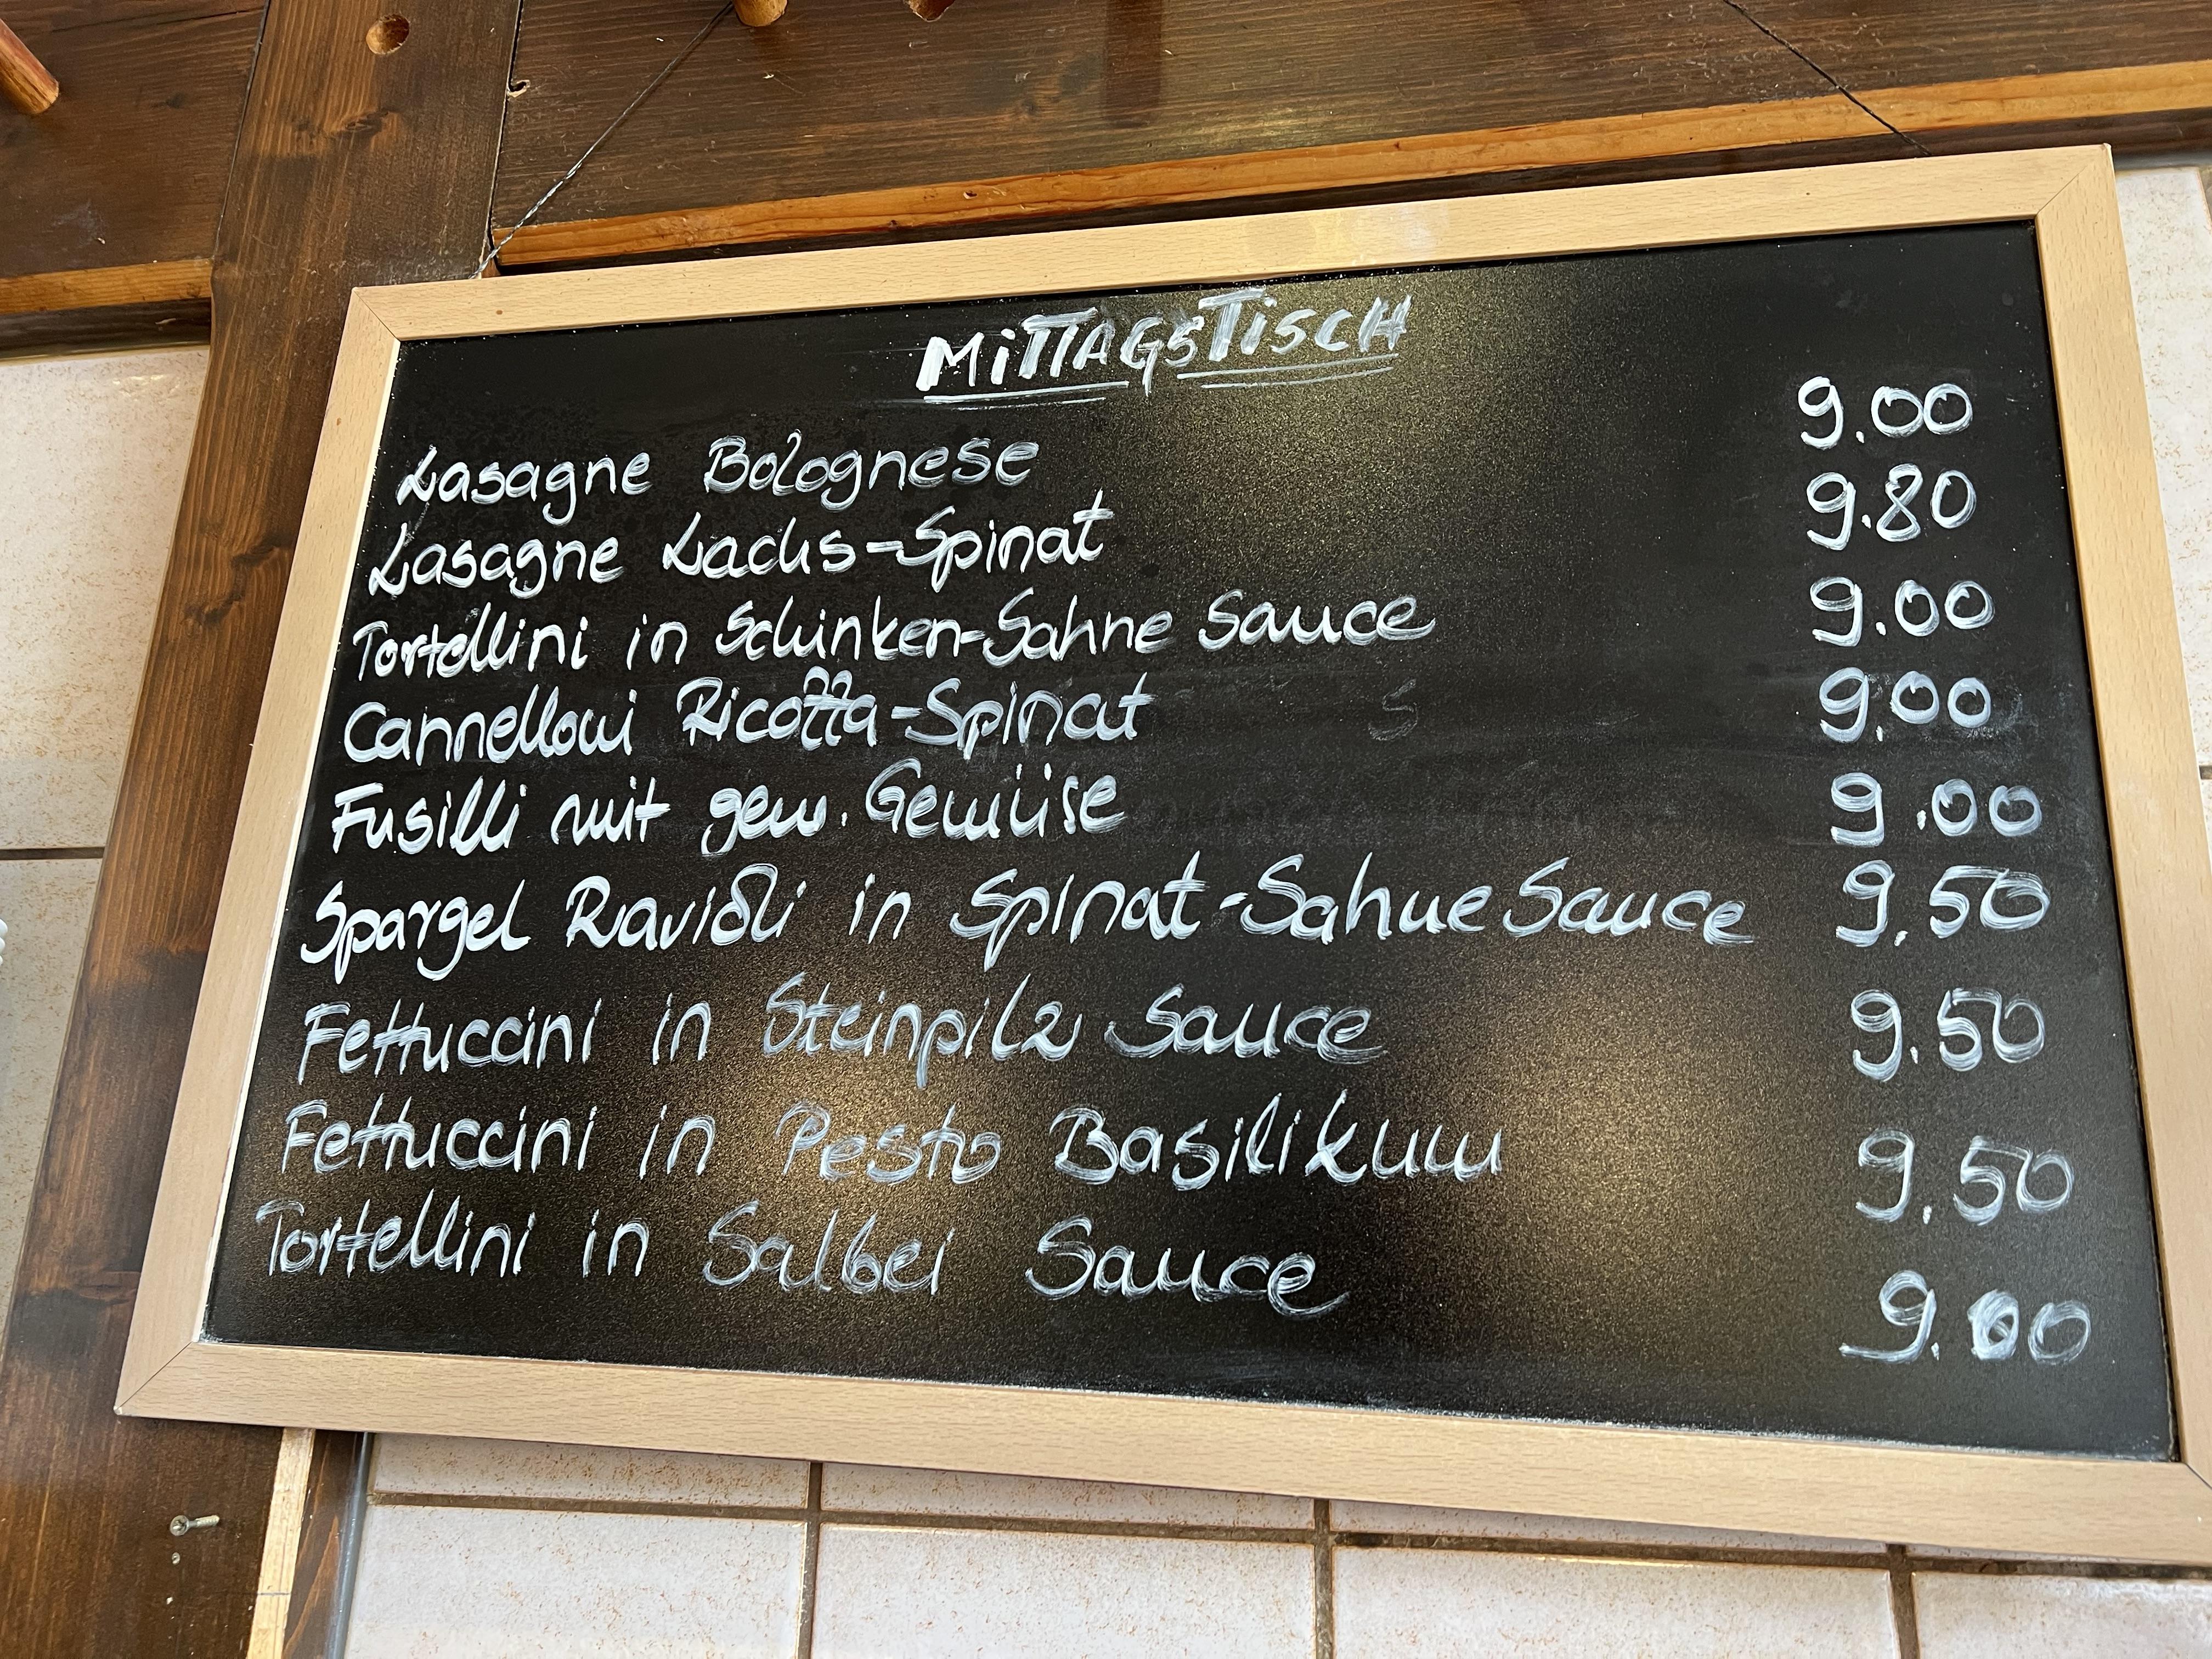 MiTTAGSTiSCH
Lasagne Bolognese 9.00
Lasagne Lachs-Spinat 9.80
Tortellini in Schinken-Sahne Sauce 9.00
Cannelloni Ricotta-Spinat 9.00
Fusilli mit gem. Gemüse 9.00
Spargel Ravioli in Spinat-Sahne Sauce 9.50
Fettuccini in Steinpilz Sauce 9.50
Fettuccini in Pesto Basilikum 9.50
Tortellini in Salbei Sauce 9.00